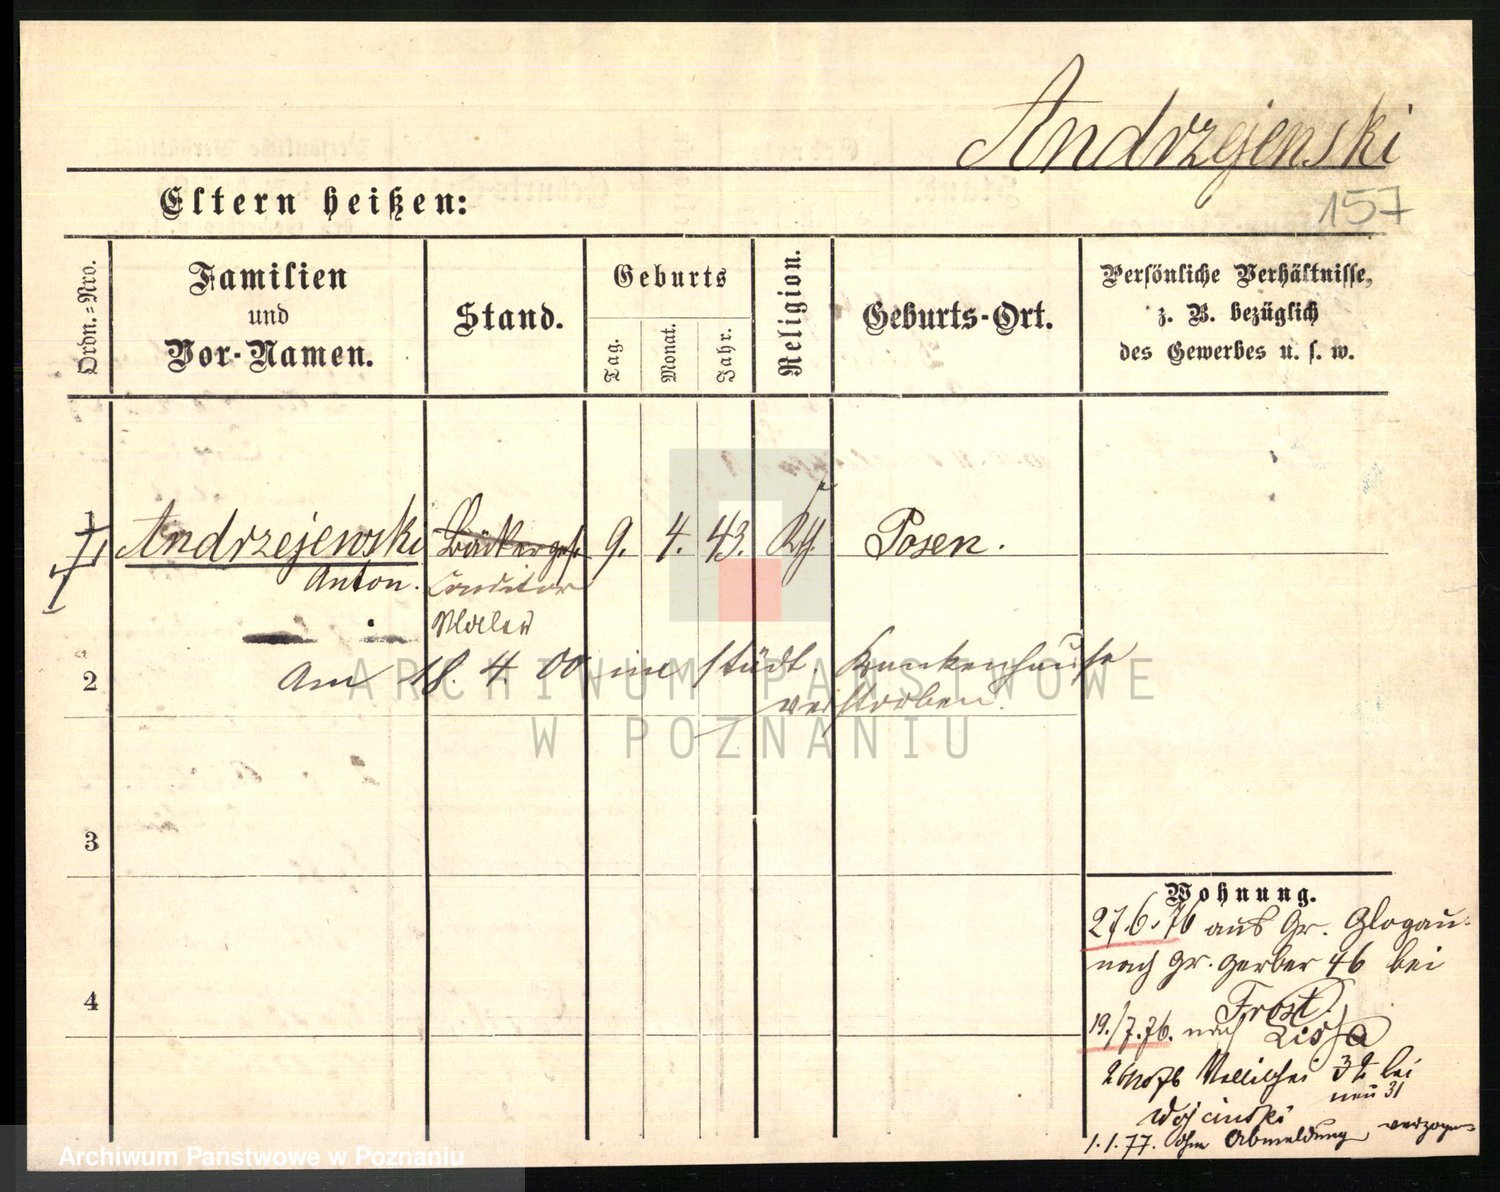 Andrzejenski
157
Eltern heißen:
Ordn.-Nro.
Familien
und
Vor-Namen.
Stand.
Geburts
Tag.
Monat.
Jahr.
Religion.
Geburts-Ort.
Persönliche Verhältnisse,
z. B. bezüglich
des Gewerbes u. s. w.
1 Andrzejewski Bäckerges. 9. 4. 43. Posen.
Anton. Conditor
Maler
2 Am 18. 4. 00 im städt. Krankenhause
verstorben.
3
4
Wohnung.
27.6.76 aus Gr. Glogau.
nach Gr. Gerber 46 bei
Frost.
19./7.76. nach Lissa
bei
neu 31
Wojcinski
1.1.77. ohne Abmeldung verzogen
ARCHIWUM PAŃSTWOWE
W POZNANIU
Archiwum Państwowe w Poznaniu